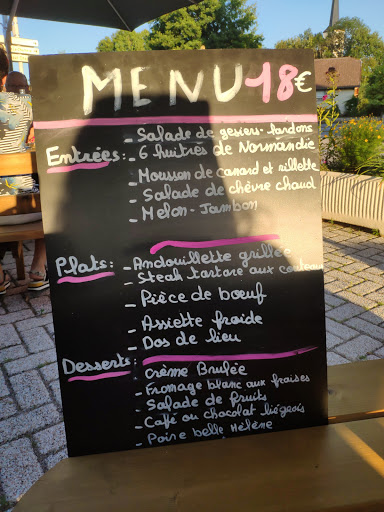 MENU 18€
Entrées: - Salade de gésiers-lardons
- 6 huîtres de Normandie
- Mousson de canard et rillette
- Salade de chèvre chaud
- Melon-Jambon
Plats: - Andouillette grillée
- Steak tartare aux couteau
- Pièce de boeuf
- Assiette froide
- Dos de lieu
Desserts:
- crème Brulée
- Fromage blanc aux fraises
- Salade de fruits
- Café ou chocolat liégeois
- Poire belle Hélène